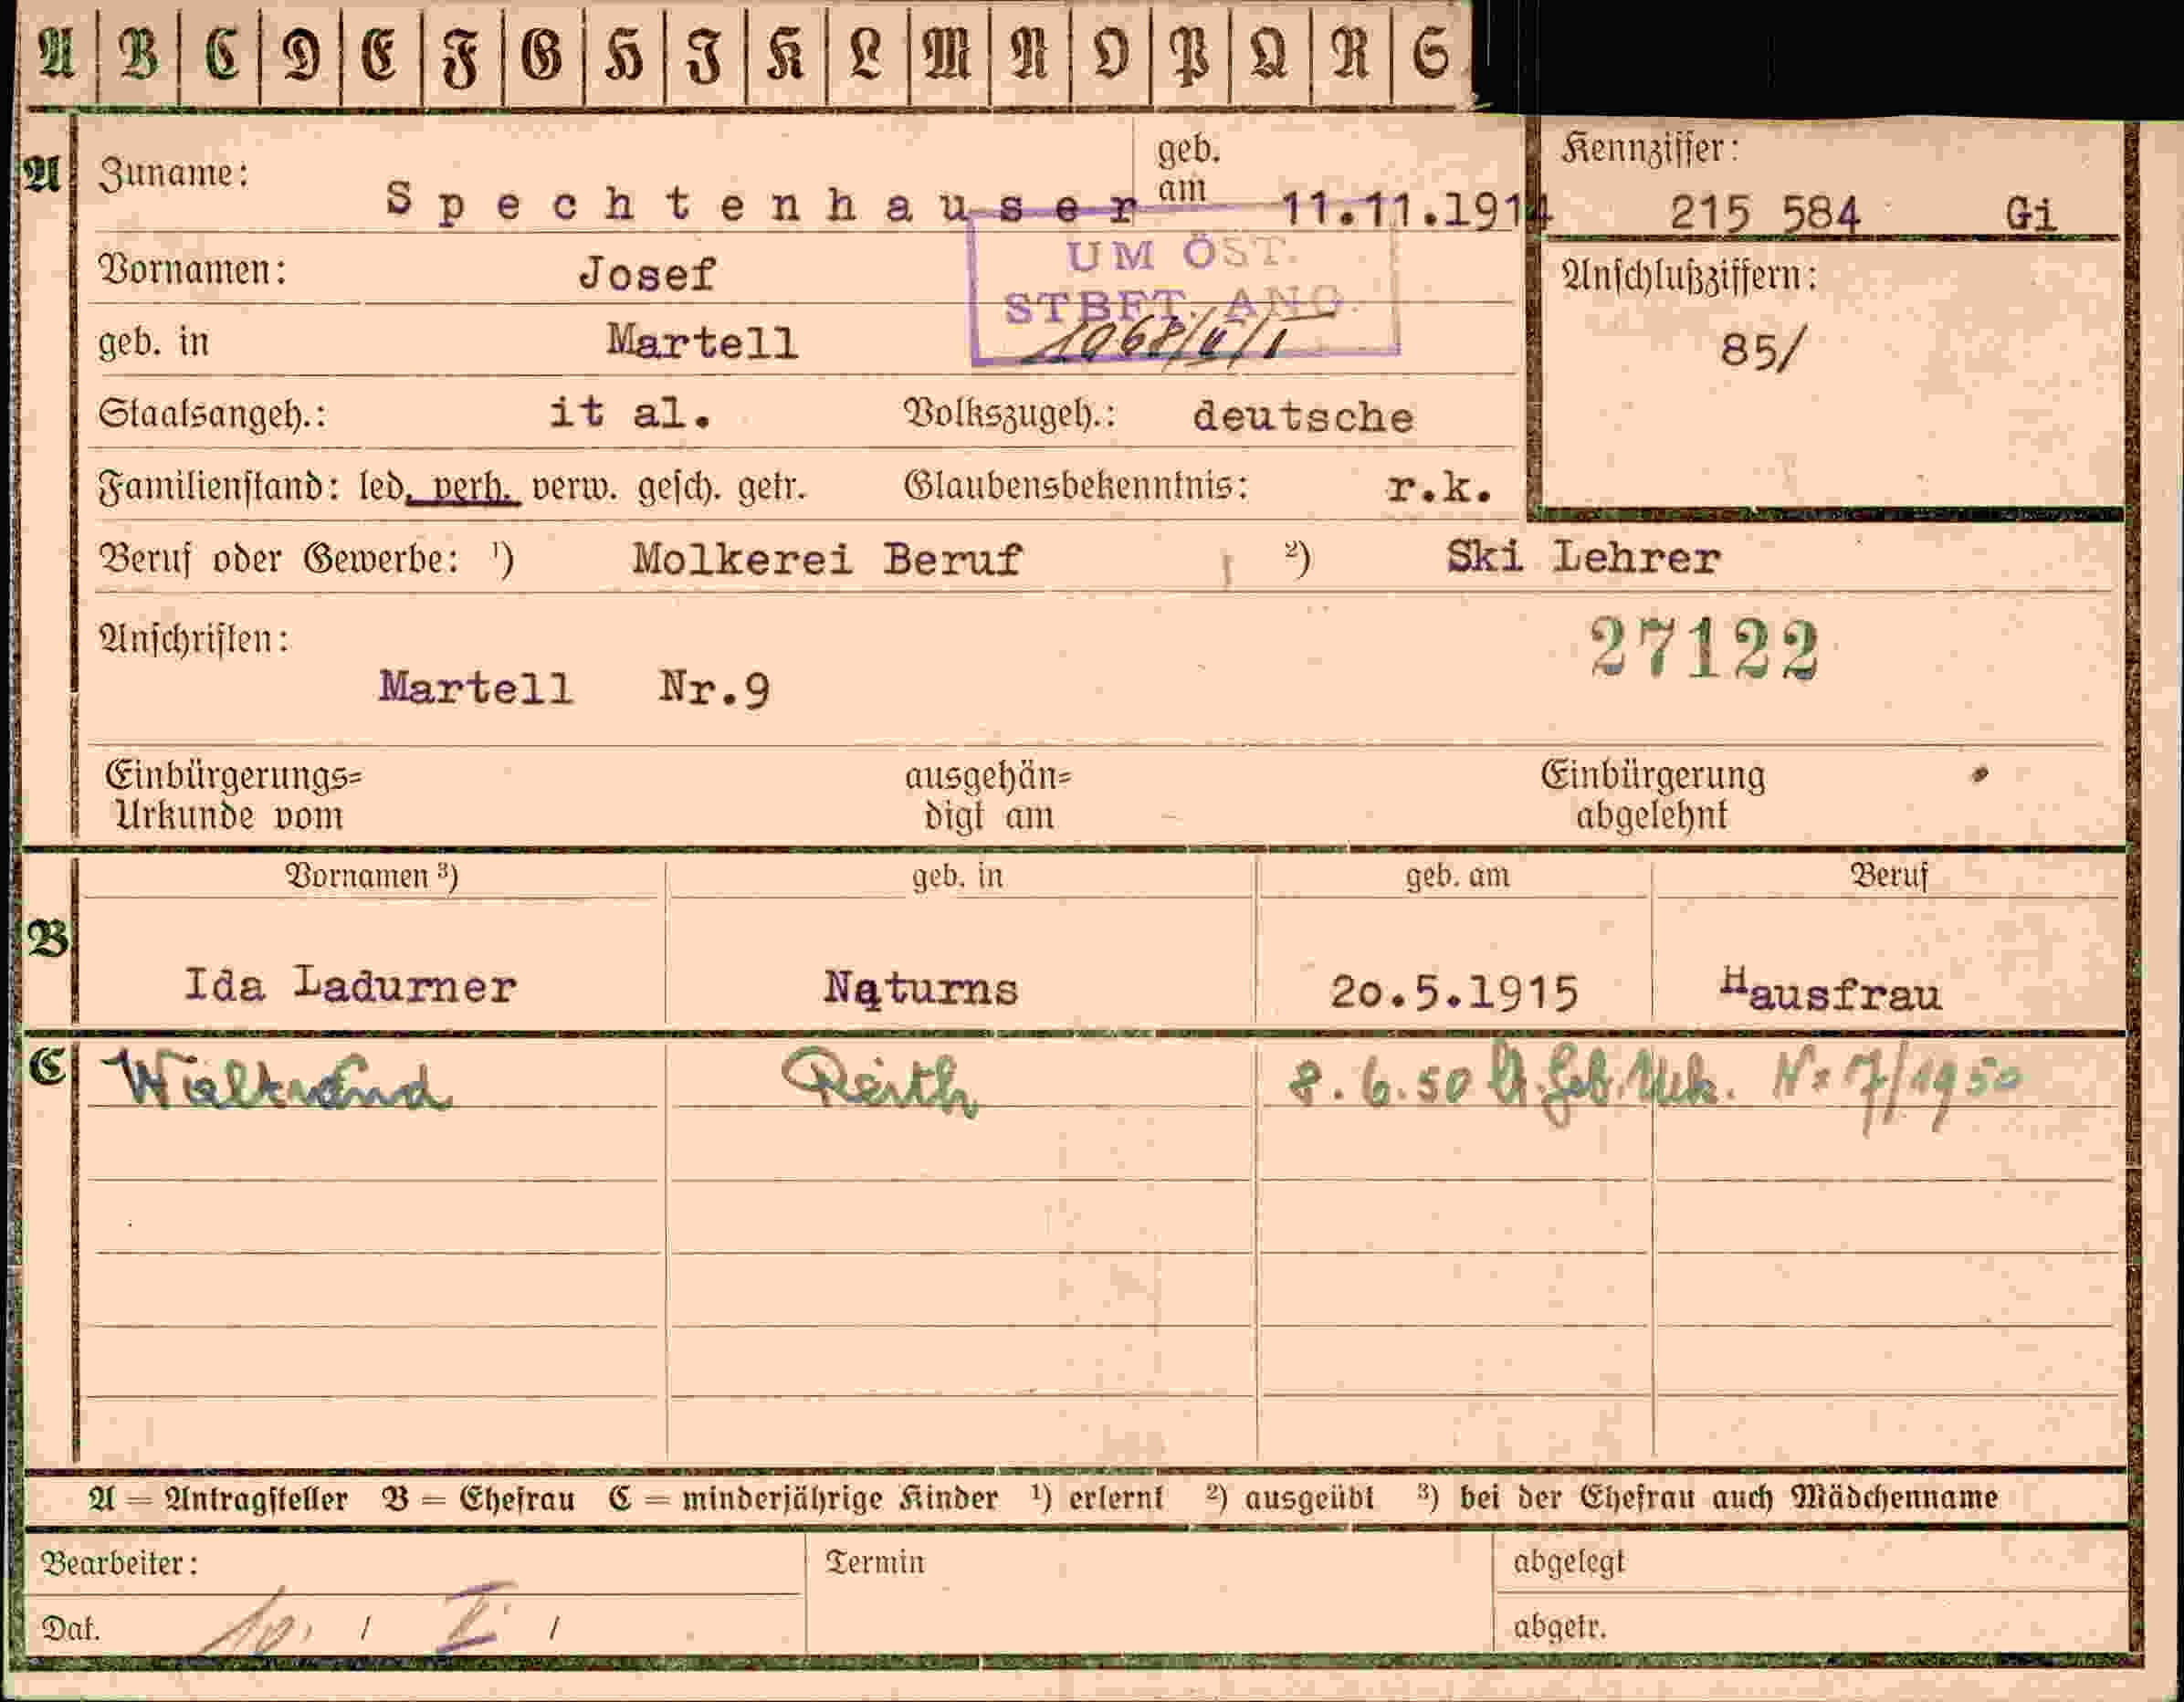 A B C D E F G H J K L M N O P Q R S
A Zuname: Spechtenhauser geb. am 11.11.1914
Kennziffer: 215 584 Gi
UM ÖST.
STBFT. ANG.
1068/II/1
Vornamen: Josef
Anschlußziffern:
geb. in Martell
85/
Staatsangeh.: it al. Volkszugeh.: deutsche
Familienstand: led. verh. verw. gesch. getr. Glaubensbekenntnis: r.k.
Beruf oder Gewerbe: ¹) Molkerei Beruf ²) Ski Lehrer
Anschriften: 27122
Martell Nr.9
Einbürgerungs= ausgehän= Einbürgerung
Urkunde vom digt am abgelehnt
Vornamen ³) geb. in geb. am Beruf
B Ida Ladurner Naturns 20.5.1915 Hausfrau
C Waltraud Reith 8.6.50 lt. Geb. Urk. Nr 7/1950
A = Antragsteller B = Ehefrau C = minderjährige Kinder ¹) erlernt ²) ausgeübt ³) bei der Ehefrau auch Mädchenname
Bearbeiter: Termin abgelegt
Dat. 10. / I. / abgetr.